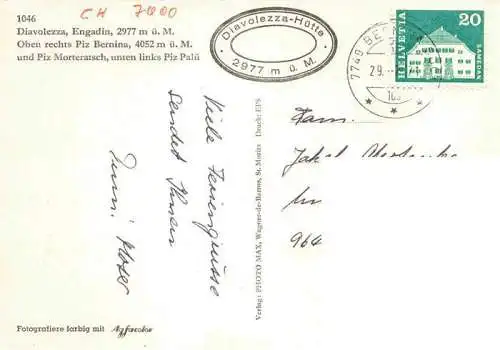 CH 7000
1046
Diavolezza, Engadin, 2977 m ü. M.
Oben rechts Piz Bernina, 4052 m ü. M.
und Piz Morteratsch, unten links Piz Palü
Diavolezza-Hütte
2977 m ü. M.
7749 BE
29.
HELVETIA
20
SAMEDAN
Viele Feriengrüsse
sendet Ihnen
Fam.
Jakob
964
Verlag: PHOTO MAX, Wagner-de-Barros, St. Moritz Druck: EFS
Fotografiere farbig mit Agfacolor